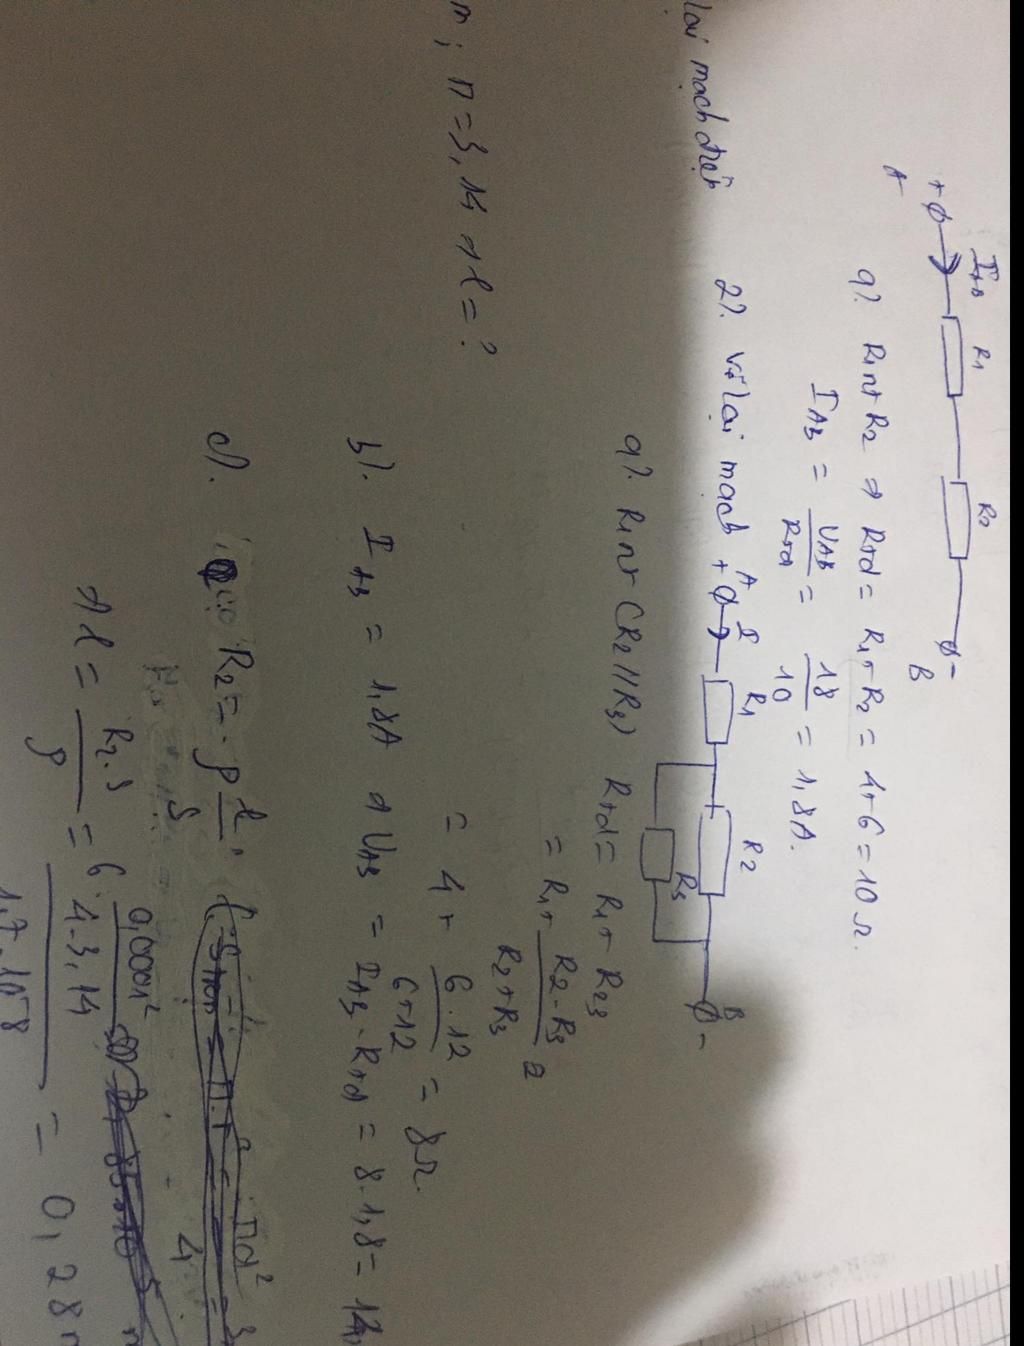 + A I_AB R1 R2 B -
lại mạch điện
a). R1 nt R2 ⇒ Rtđ = R1 + R2 = 4 + 6 = 10 Ω.
I_AB = U_AB / Rtđ = 18 / 10 = 1,8A.
2). Vẽ lại mạch + A I R1 R2 R3 B -
a). R1 nt (R2 // R3) Rtđ = R1 + R23
= R1 + R2 . R3 / R2 + R3
= 4 + 6 . 12 / 6 + 12 = 8 Ω.
m ; π = 3,14 ⇒ l = ?
b). I_AB = 1,8A ⇒ U_AB = I_AB . Rtđ = 8 . 1,8 = 14,
c). có R2 = ρ l / S πd² / 4
⇒ l = R2 . S / ρ = 6 . 0,0001² / 4 . 3,14 / 1,7 . 10⁻⁸ = 0,28